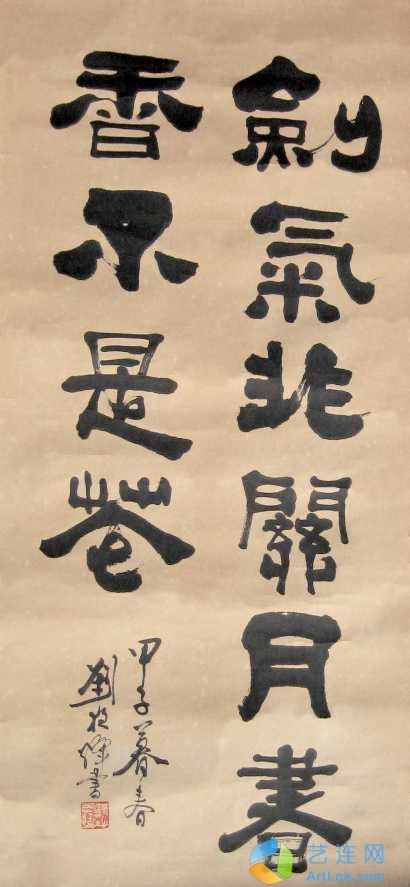 劍氣非關月書
香不是花
甲子暮春
劉書
艺连网
ArtLnk.com